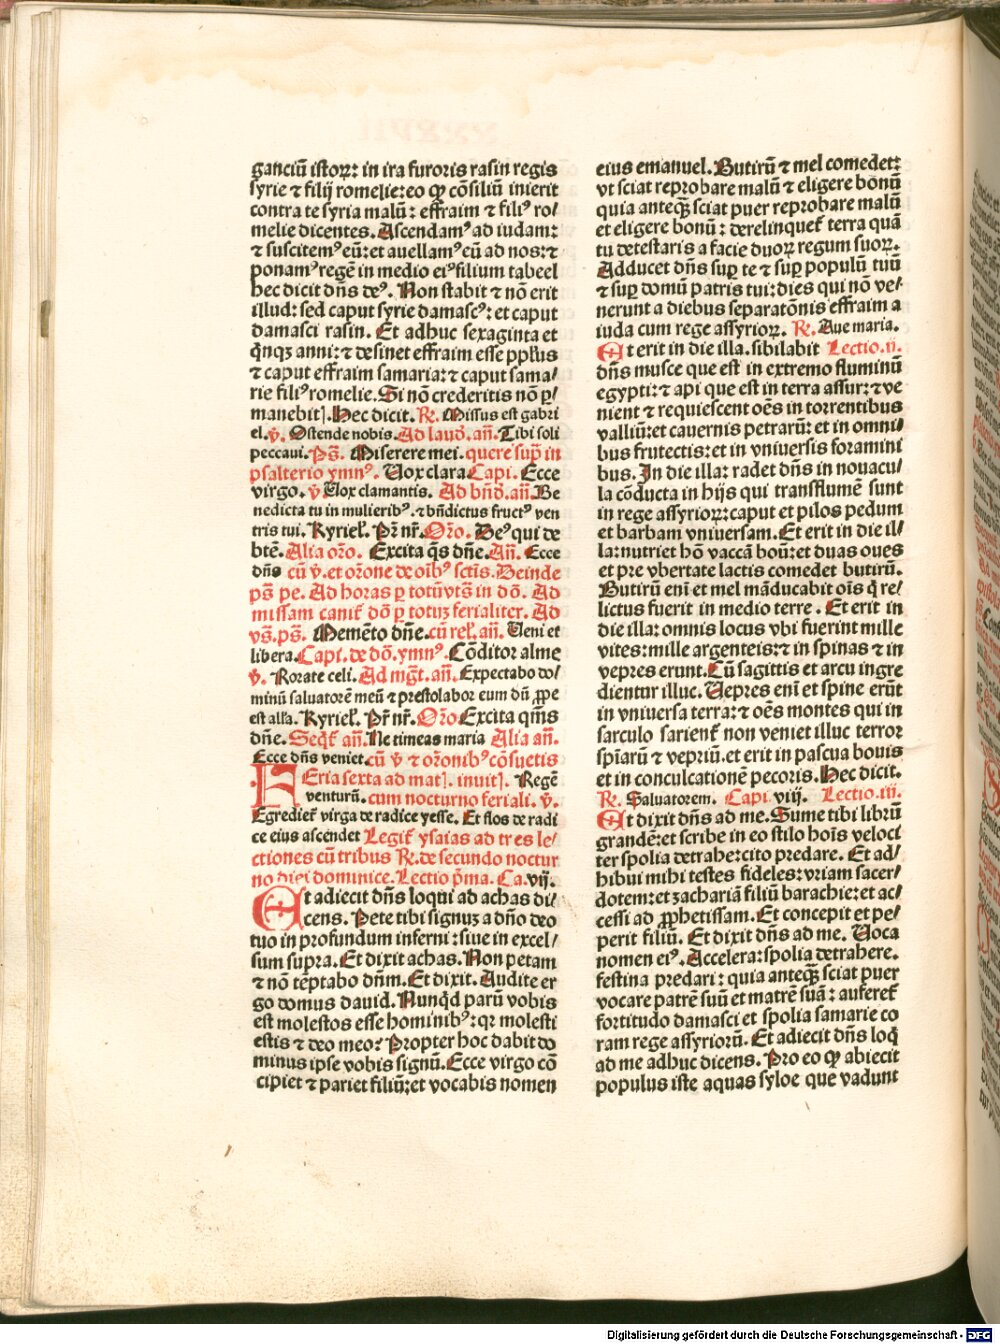 ganciũ istoꝝ: in ira furoris rasin regis
syrie ⁊ filij romelie: eo ꝙ cõsiliũ inierit
contra te syria malũ: effraim ⁊ filiꝰ ro/
melie dicentes. Ascendamꝰ ad iudam:
⁊ suscitemꝰ eũ: et auellamꝰ eũ ad nos: ⁊
ponamꝰ regẽ in medio eiꝰ filium tabeel
hec dicit dñs deꝰ. Non stabit ⁊ nõ erit
illud: sed caput syrie damascꝰ: et caput
damasci rasin. Et adhuc sexaginta et
qͥnqꝫ anni: ⁊ desinet effraim esse ppl̃us
⁊ caput effraim samaria: ⁊ caput sama/
rie filiꝰ romelie. Si nõ crederitis nõ ꝑ/
manebit]. Hec dicit. R̃. Missus est gabri
el. v̾. Ostende nobis. Ad laud̃. añ. Tibi soli
peccaui. Ps̃. Miserere mei. quere sup̃ in
psalterio ymnꝰ. Uox clara Capi. Ecce
virgo. v̾ Uox clamantis. Ad bñd̃. añ. Be
nedicta tu in mulieribꝰ. ⁊ bñdictus fructꝰ ven
tris tui. Kyriel̃. Pr̃ nr̃. Oꝛo. Deꝰ qui de
btẽ. Alia oꝛo. Excita q̃s dñe. Añ. Ecce
dñs cũ v̾. et oꝛone de oĩbꝰ sctĩs. Deinde
ps̃ pe. Ad horas ꝑ totũ vts̃ in dõ. Ad
missam canit᷑ dõ ꝑ totuꝫ ferialiter. Ad
vs̃. ps̃. Memẽto dñe. cũ rel̃. añ. Ueni et
libera. Capi. de dõ. ymnꝰ. Cõditor alme
v̾. Rorate celi. Ad mg̃t. añ. Expectabo do/
minũ saluatorẽ meũ ⁊ prestolabor eum dũ ꝓpe
est alla. Kyriel̃. Pr̃ nr̃. Oꝛo Excita qm̃s
dñe. Seqt᷑ añ. Ne timeas maria Alia añ.
Ecce dñs veniet. cũ v̾ ⁊ oꝛonibꝰ cõsuetis
FEria sexta ad mat]. inuit]. Regẽ
venturũ. cum nocturno feriali. v̾.
Egrediet᷑ virga de radice yesse. Et flos de radi
ce eius ascendet Legit᷑ ysaias ad tres le/
ctiones cũ tribus R̃. de secundo noctur
no dici dominice. Lectio p̃ma. Ca. vij.
Et adiecit dñs loqui ad achas di/
cens. Pete tibi signuꝫ a dño deo
tuo in profundum inferni: siue in excel/
sum supra. Et dixit achas. Non petam
⁊ nõ tẽptabo dñm. Et dixit. Audite er
go domus dauid. Nunqͥd parũ vobis
est molestos esse hominibꝰ: qꝛ molesti
estis ⁊ deo meo? Propter hoc dabit do
minus ipse vobis signũ. Ecce virgo cõ
cipiet ⁊ pariet filiũ: et vocabis nomen
eius emanuel. Butirũ ⁊ mel comedet:
vt sciat reprobare malũ ⁊ eligere bonũ
quia anteqꝫ sciat puer reprobare malũ
et eligere bonũ: derelinquet᷑ terra quã
tu detestaris a facie duoꝝ regum suoꝝ.
Adducet dñs suꝑ te ⁊ suꝑ populũ tuũ
⁊ suꝑ domũ patris tui: dies qui nõ ve/
nerunt a diebus separatõnis effraim a
iuda cum rege assyrioꝝ. R̃. Aue maria.
Et erit in die illa. sibilabit Lectio. ij.
dñs musce que est in extremo fluminũ
egypti: ⁊ api que est in terra assur: ⁊ ve
nient ⁊ requiescent oẽs in torrentibus
valliũ: et cauernis petrarũ: et in omni/
bus frutectis: et in vniuersis foramini
bus. In die illa: radet dñs in nouacu/
la cõducta in hijs qui transflumẽ sunt
in rege assyrioꝝ: caput et pilos pedum
et barbam vniuersam. Et erit in die il/
la: nutriet hõ vaccã boũ: et duas oues
et pre vbertate lactis comedet butirũ.
Butirũ enĩ et mel mãducabit oĩs q̃ re/
lictus fuerit in medio terre. Et erit in
die illa: omnis locus vbi fuerint mille
vites: mille argenteis: et in spinas ⁊ in
vepres erunt. Cũ sagittis et arcu ingre
dientur illuc. Uepres enĩ et spine erũt
in vniuersa terra: ⁊ oẽs montes qui in
sarculo sarient᷑ non veniet illuc terror
spĩarũ ⁊ vepriũ. et erit in pascua bouis
et in conculcationẽ pecoris. Hec dicit.
R̃. Saluatorem. Capi viij. Lectio. iij.
Et dixit dñs ad me. Sume tibi librũ
grandẽ: et scribe in eo stilo hoĩs veloci
ter spolia detrahe: cito predare. Et ad/
hibui mihi testes fideles: vriam sacer/
dotem: et zachariã filiũ barachie: et ac/
cessi ad ꝓphetissam. Et concepit et pe/
perit filiũ. Et dixit dñs ad me. Uoca
nomen eiꝰ. Accelera: spolia detrahere.
festina predari: quia anteqꝫ sciat puer
vocare patrẽ suũ et matrẽ suã: auferet᷑
fortitudo damasci et spolia samarie co
ram rege assyriorũ. Et adiecit dñs loqͥ
ad me adhuc dicens. Pro eo ꝙ abiecit
populus iste aquas syloe que vadunt
Digitalisierung gefördert durch die Deutsche Forschungsgemeinschaft - DFG